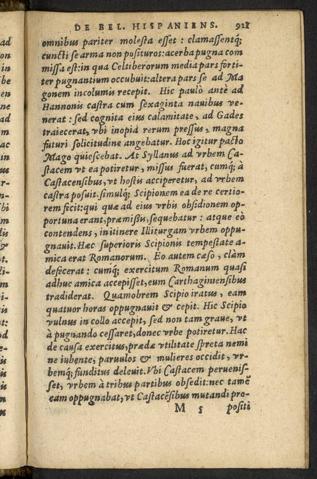 DE BEL. HISPANIENS. 921
omnibus pariter molesta esset: clamassentq́;
cuncti se arma non posituros: acerba pugna com
missa est: in qua Celtiberorum media pars forti-
ter pugnantium occubuit: altera pars se ad Ma
gonem incolumis recepit. Hic paulò antè ad
Hannonis castra cum sexaginta nauibus ve-
nerat: sed cognita eius calamitate, ad Gades
traiecerat, vbi inopia rerum pressus, magna
futuri solicitudine angebatur. Hoc igitur pacto
Mago quiescebat. At Syllanus ad vrbem Ca-
stacem vt ea potiretur, missus fuerat, cumq́; à
Castacensibus, vt hostis acciperetur, ad vrbem
castra posuit. simulq́; Scipionem ea de re certio-
rem fecit: qui quæ ad eius vrbis obsidionem op-
portuna erant, præmisit, sequebatur: atque eò
contendens, in itinere Illiturgam vrbem oppu-
gnauit. Hæc superioris Scipionis tempestate a-
mica erat Romanorum. Eo autem cæso, clàm
defecerat: cumq́; exercitum Romanum quasi
adhuc amica accepisset, eum Carthaginensibus
tradiderat. Quamobrem Scipio iratus, eam
quatuor horas oppugnauit & cepit. Hic Scipio
vulnus in collo accepit, sed non tam graue, vt
à pugnando cessaret, donec vrbe potiretur. Hac
de causa exercitus, prædæ vtilitate spreta nemi
ne iubente, paruulos & mulieres occidit, vr-
bemq́; funditus deleuit. Vbi Castacem peruenis-
set, vrbem à tribus partibus obsedit: nec tamē
eam oppugnabat, vt Castacēsibus mutandi pro-
M 5 positi